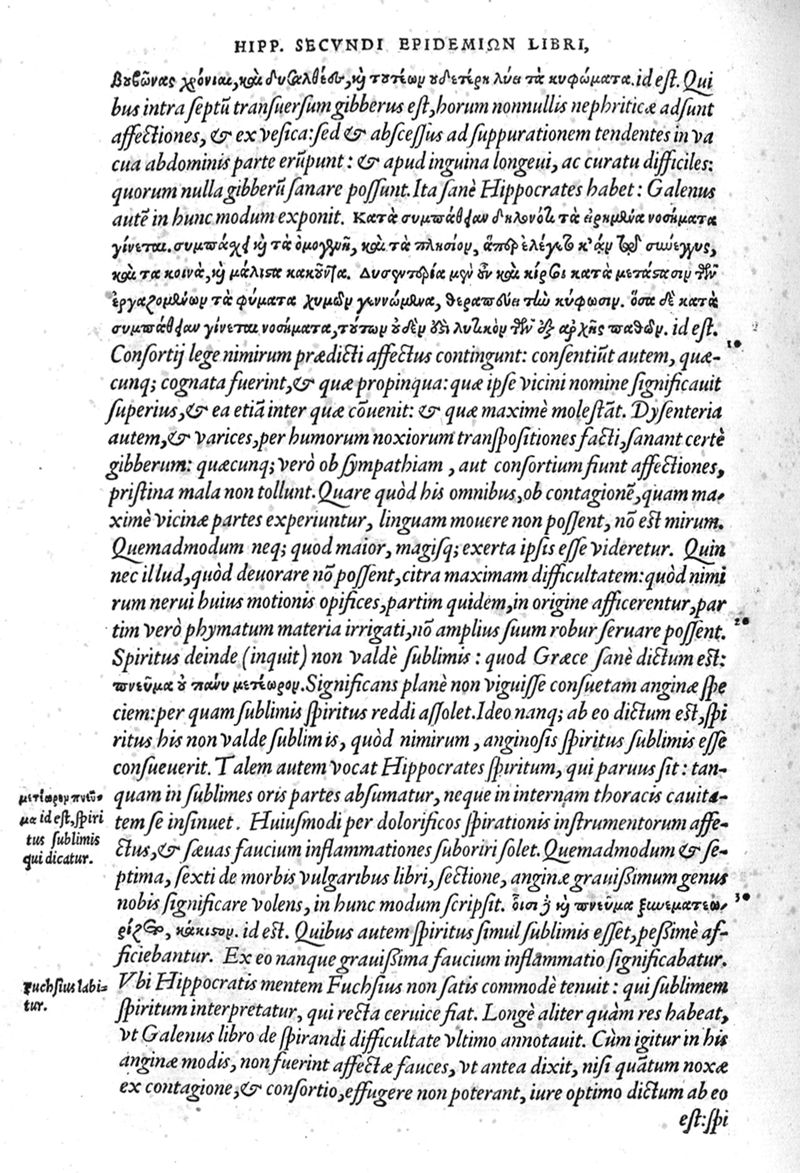 HIPP. SECVNDI EPIDEMIΩN LIBRI,
βουβῶνας χρόνιαι, καὶ δυσαλθέες, καὶ τουτέων οὐδετέρη λύει τὰ κυφώματα. id est. Qui
bus intra septũ transuersum gibberus est, horum nonnullis nephriticæ adsunt
affectiones, & ex vesica: sed & abscessus ad suppurationem tendentes in va
cua abdominis parte erũpunt: & apud inguina longeui, ac curatu difficiles:
quorum nulla gibberũ sanare possunt. Ita sanè Hippocrates habet: Galenus
autẽ in hunc modum exponit. Κατὰ συμπάθειαν δηλονότι τὰ εἰρημένα νοσήματα
γίνεται. συμπάσχει καὶ τὰ ὁμογενῆ, καὶ τὰ πλησίον, ἅπερ ἐλέγετο κἀν τοῖς σύνεγγυς,
καὶ τα κοινὰ, καὶ μάλιστα κακοῦντα. Δυσεντερία μὲν οὖν καὶ κίρσοι κατὰ μετάστασιν τῶν
ἐργαζομένων τὰ φύματα χυμῶν γεννώμενα, θεραπεύει τὴν κύφωσιν. ὅσα δὲ κατὰ
συμπάθειαν γίνεται νοσήματα, τούτων οὐδὲν ἐστὶ λυτικὸν τῶν ἐξ ἀρχῆς παθῶν. id est.
10
Consortij lege nimirum prædicti affectus contingunt: consentiũt autem, quæ-
cunq; cognata fuerint, & quæ propinqua: quæ ipse vicini nomine significauit
superius, & ea etiã inter quæ cõuenit: & quæ maximè molestãt. Dysenteria
autem, & varices, per humorum noxiorum transpositiones facti, sanant certè
gibberum: quæcunq; verò ob sympathiam, aut consortium fiunt affectiones,
pristina mala non tollunt. Quare quòd his omnibus, ob contagionẽ, quam ma-
ximè vicinæ partes experiuntur, linguam mouere non possent, nõ est mirum.
Quemadmodum neq; quod maior, magisq; exerta ipsis esse videretur. Quin
nec illud, quòd deuorare nõ possent, citra maximam difficultatem: quòd nimi
rum nerui huius motionis opifices, partim quidem, in origine afficerentur, par
20
tim verò phymatum materia irrigati, nõ amplius suum robur seruare possent.
Spiritus deinde (inquit) non valdè sublimis: quod Græce sanè dictum est:
πνεῦμα οὐ πάνυ μετέωρον. Significans planè non viguisse consuetam anginæ spe
ciem: per quam sublimis spiritus reddi assolet. Ideo nanq; ab eo dictum est, spi
ritus his non valde sublimis, quòd nimirum, anginosis spiritus sublimis esse
consueuerit. Talem autem vocat Hippocrates spiritum, qui paruus sit: tan-
μετέωρον πνεῦ-
μα id est, spiri
tus sublimis
qui dicatur.
quam in sublimes oris partes absumatur, neque in internam thoracis cauita-
tem se insinuet. Huiusmodi per dolorificos spirationis instrumentorum affe-
ctus, & sæuas faucium inflammationes suboriri solet. Quemadmodum & se-
ptima, sexti de morbis vulgaribus libri, sectione, anginæ grauißimum genus
nobis significare volens, in hunc modum scripsit. οἷσι δὲ καὶ πνεῦμα ξυνεμετεω-
30
ρίζετο, κάκιστον. id est. Quibus autem spiritus simul sublimis esset, peßimè af-
ficiebantur. Ex eo nanque grauißima faucium inflãmatio significabatur.
Fuchsius labi-
tur.
Vbi Hippocratis mentem Fuchsius non satis commodè tenuit: qui sublimem
spiritum interpretatur, qui recta ceruice fiat. Longè aliter quàm res habeat,
vt Galenus libro de spirandi difficultate vltimo annotauit. Cùm igitur in his
anginæ modis, non fuerint affectæ fauces, vt antea dixit, nisi quãtum noxæ
ex contagione, & consortio, effugere non poterant, iure optimo dictum ab eo
est: spi